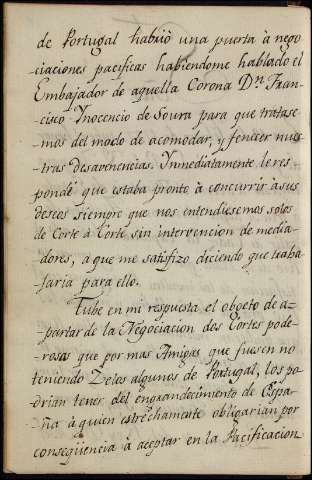 de Portugal habrió una puerta à nego
-ciaciones pacificas habiendome hablado el
Embajador de aquella Corona Dn. Fran-
-cisco Ynocencio de Soura para que tratase-
-mos del modo de acomodar, y fenecer nues-
-tras desavenencias. Ynmediatamente le res-
-pondé que estaba pronto à concurrir à sus
deseos siempre que nos entendiesemos solos
de Corte à Corte sin intervencion de media-
-dores, a que me satisfizo diciendo que traba-
-jaria para ello.
Tube en mi respuesta el obgeto de a-
-partar de la Negociacion dos Cortes pode-
-rosas que por mas Amigas que fuesen no
teniendo Zelos algunos de Portugal, los po-
-drian tener del engrandecimiento de Espa-
-ña à quien estrechamente obligarian por
conseqüencia à aceptar en la Pacificacion